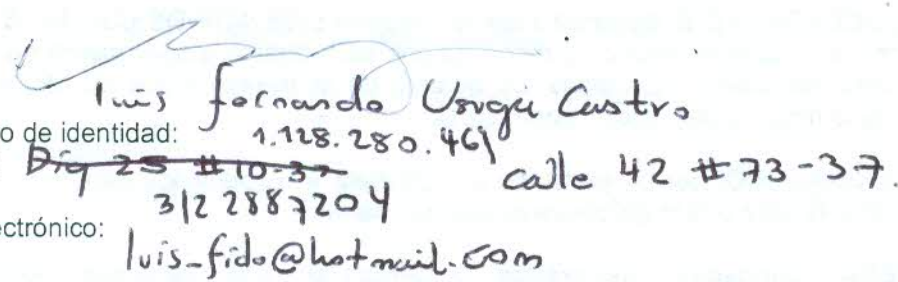 luis fernando Usuga Castro
o de identidad: 1.128.280.461
Diq 25 #10-37 calle 42 #73-37.
312 2887204
ectrónico: luis_fido@hotmail.com